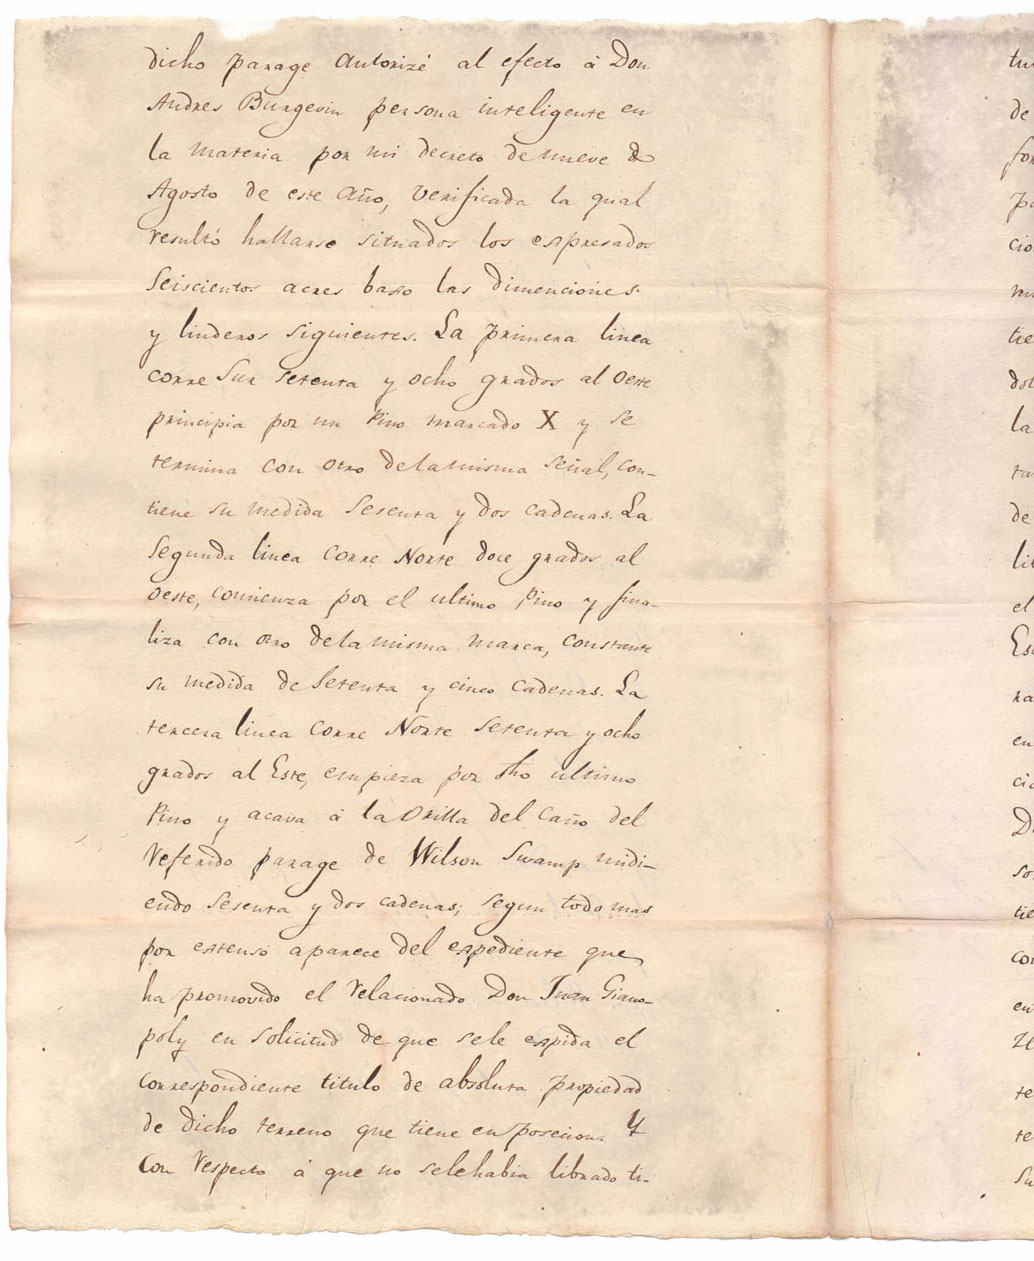 dicho parage autorizé al efecto à Don
Andres Burgevin persona inteligente en
la materia por mi decreto de nueve de
Agosto de este año, verificada la qual
resultó hallarse situados los espresados
Seiscientos acres baso las dimenciones
y linderos siguientes. La primera linea
corre Sur setenta y ocho grados al oeste
principia por un Pino marcado X y se
termina con otro de la misma señal, con-
tiene su medida sesenta y dos cadenas. La
Segunda linea corre Norte doce grados al
oeste, comienza por el ultimo Pino y fina-
liza con otro de la misma marca, constante
su medida de setenta y cinco cadenas. La
tercera linea corre Norte setenta y ocho
grados al Este, empieza por dho ultimo
Pino y acava à la orilla del caño del
referido parage de Wilson Swamp midi-
endo sesenta y dos cadenas; segun todo mas
por estenso aparece del espediente que
ha promovido el relacionado Don Juan Giano-
poly en solicitud de que sele espida el
correspondiente titulo de absoluta propiedad
de dicho terreno que tiene en posecion. Y
Con respecto á que no selehabia librado ti-
tu
de
for
pa
cio
tie
dol
la
ta
de
lib
el
Es
ra
en
cia
D
so
tie
con
en
te
te
su